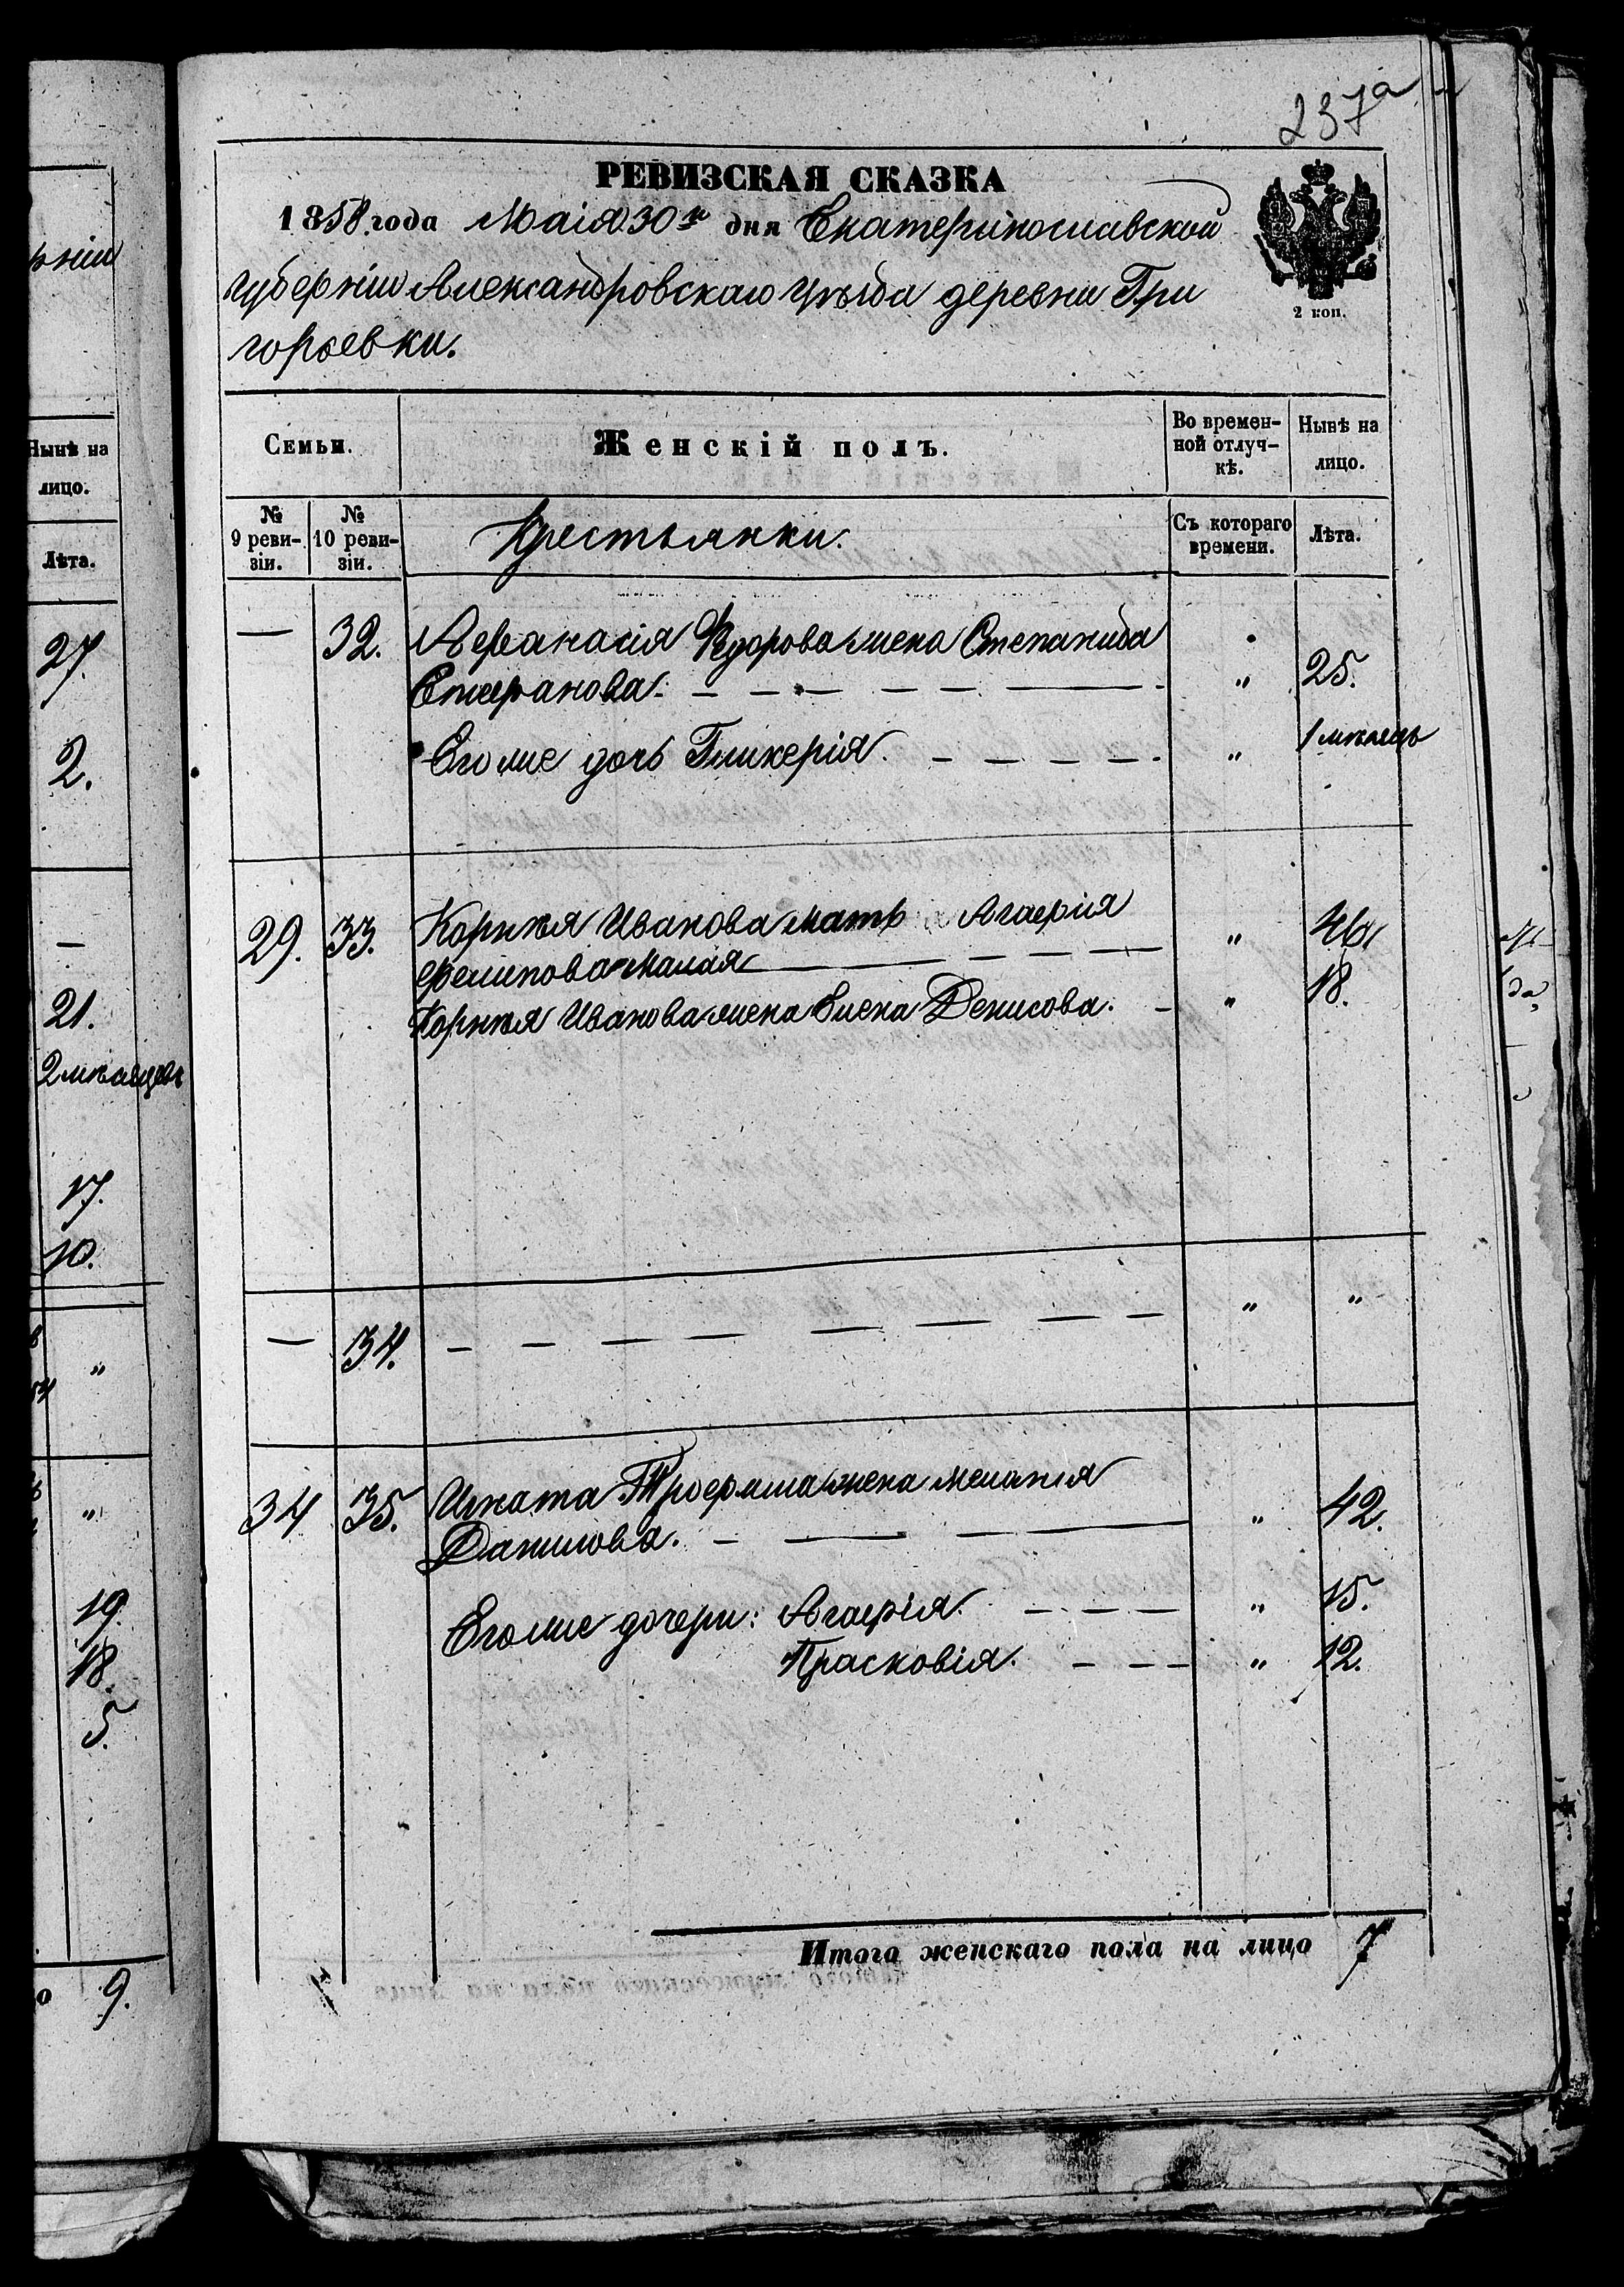 237а
РЕВИЗСКАЯ СКАЗКА
1858 года Маія 30го дня Екатеринославской
губерніи Александровскаго уѣзда деревни Гри
горьевки.
2 коп.
Семьи.
Женскій полъ.
Во времен-
ной отлуч-
кѣ.
Нынѣ на
лицо.
№
9 реви-
зіи.
№
10 реви-
зіи.
Крестьянки.
Съ котораго
времени.
Лѣта.
— 32. Афанасія Федорова жена Степанида
Стефанова. — — — — — — " 25.
Его же дочь Гликерія. — — — — " 1 мѣсяць
29. 33. Корнѣя Иванова мать Агафія " 46
Филипова Малая — — — —
Корнѣя Иванова жена Елена Денисова. — " 18.
— 34. — — — — — — — — " "
34 35. Игната Трофима жена Меланія
Данилова. — — — — " 42.
Его же дочери: Агафія. — — — " 15.
Прасковія. — — — " 12.
Итого женскаго пола на лицо 7
рніи
Нынѣ на
лицо.
Лѣта.
27.
2.
—
21.
2 мѣсяцевъ
17.
10.
"
"
19.
18.
5.
о 9.